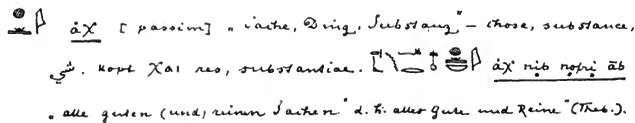 ȧχ [passim] „Sache, Ding, Substanz“ – chose, substance,
شي. kopt χαι res, substantiae. ȧχ nib nofri āb
„alle guten (und) reinen Sachen“ d. h. alles Gute und Reine“ (Theb.).